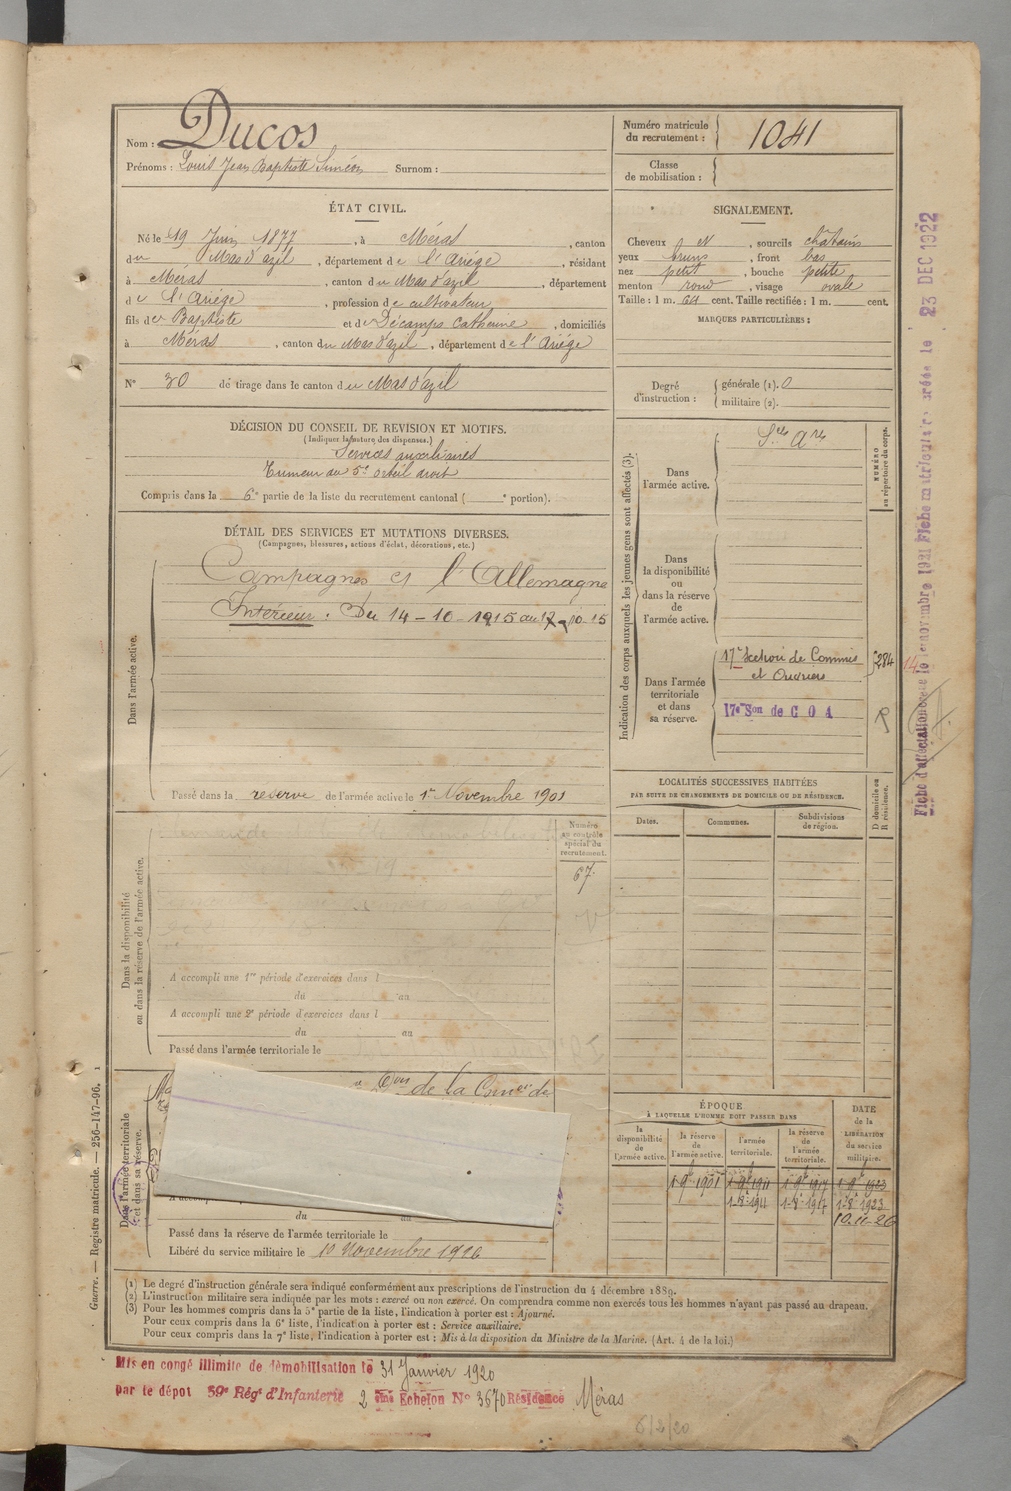 Nom : Ducos
Prénoms : Louis Jean Baptiste Siméon Surnom :
Numéro matricule du recrutement : 1041
Classe de mobilisation :
ÉTAT CIVIL.
Né le 19 Juin 1877, à Méras, canton
du Mas d'azil, département de l'Ariége, résidant
à Méras, canton du Mas d'azil, département
de l'Ariége, profession de cultivateur
fils de Baptiste et de Décamps Catherine, domiciliés
à Méras, canton du Mas d'azil, département de l'Ariége
N° 30 de tirage dans le canton du Mas d'azil
SIGNALEMENT.
Cheveux N, sourcils châtains
yeux bruns, front bas
nez petit, bouche petite
menton rond, visage ovale
Taille : 1 m. 64 cent. Taille rectifiée : 1 m. cent.
MARQUES PARTICULIÈRES :
Degré d'instruction : générale (1). 0
militaire (2).
DÉCISION DU CONSEIL DE REVISION ET MOTIFS.
(Indiquer la nature des dispenses.)
Services auxiliaires
Tumeur au 5e orteil droit
Compris dans la 6e partie de la liste du recrutement cantonal ( e portion).
DÉTAIL DES SERVICES ET MUTATIONS DIVERSES.
(Campagnes, blessures, actions d'éclat, décorations, etc.)
Dans l'armée active.
Campagnes l'Allemagne
Intérieur : Du 14-10-1915 au 17-10-15
Passé dans la réserve de l'armée active le 1er Novembre 1901
Dans la disponibilité
ou dans la réserve de l'armée active.
Numéro
au contrôle
spécial du
recrutement.
67
A accompli une 1re période d'exercices dans l
du au
A accompli une 2e période d'exercices dans l
du au
Passé dans l'armée territoriale le
Dans l'armée territoriale
et dans sa réserve.
de la Comon de
A accomp
du
Passé dans la réserve de l'armée territoriale le
Libéré du service militaire le 10 Novembre 1926
Indication des corps auxquels les jeunes gens sont affectés (3).
NUMÉRO
au répertoire du corps.
Dans
l'armée active.
Sces Ares
Dans
la disponibilité
ou
dans la réserve
de
l'armée active.
Dans l'armée
territoriale
et dans
sa réserve.
17e Section de Commis
et Ouvriers
284
14
17e Son de C O A
LOCALITÉS SUCCESSIVES HABITÉES
PAR SUITE DE CHANGEMENTS DE DOMICILE OU DE RÉSIDENCE.
Dates. Communes. Subdivisions de région.
D domicile ou
R résidence.
ÉPOQUE
À LAQUELLE L'HOMME DOIT PASSER DANS
la disponibilité de l'armée active.
la réserve de l'armée active.
l'armée territoriale.
la réserve de l'armée territoriale.
DATE de la LIBÉRATION du service militaire.
1-9e 1901 1-9e 1911 1-9e 1917 1-9e 1923
1-8e 1911 1-8e 1917 1-8e 1923
10-11-26
(1) Le degré d'instruction générale sera indiqué conformément aux prescriptions de l'instruction du 4 décembre 1889.
(2) L'instruction militaire sera indiquée par les mots : exercé ou non exercé. On comprendra comme non exercés tous les hommes n'ayant pas passé au drapeau.
(3) Pour les hommes compris dans la 5e partie de la liste, l'indication à porter est : Ajourné.
Pour ceux compris dans la 6e liste, l'indication à porter est : Service auxiliaire.
Pour ceux compris dans la 7e liste, l'indication à porter est : Mis à la disposition du Ministre de la Marine. (Art. 4 de la loi.)
Guerre. — Registre matricule. — 256-147-96. 1
Mis en congé illimité de démobilisation le 31 Janvier 1920
par le dépot 59e Régt d'Infanterie 2 ème Echelon N° 3670 Résidence Méras
6/2/20
Fiche d'affectation créée le 1 novembre 1921 Fiche matriculaire créée le 23 DEC 1922